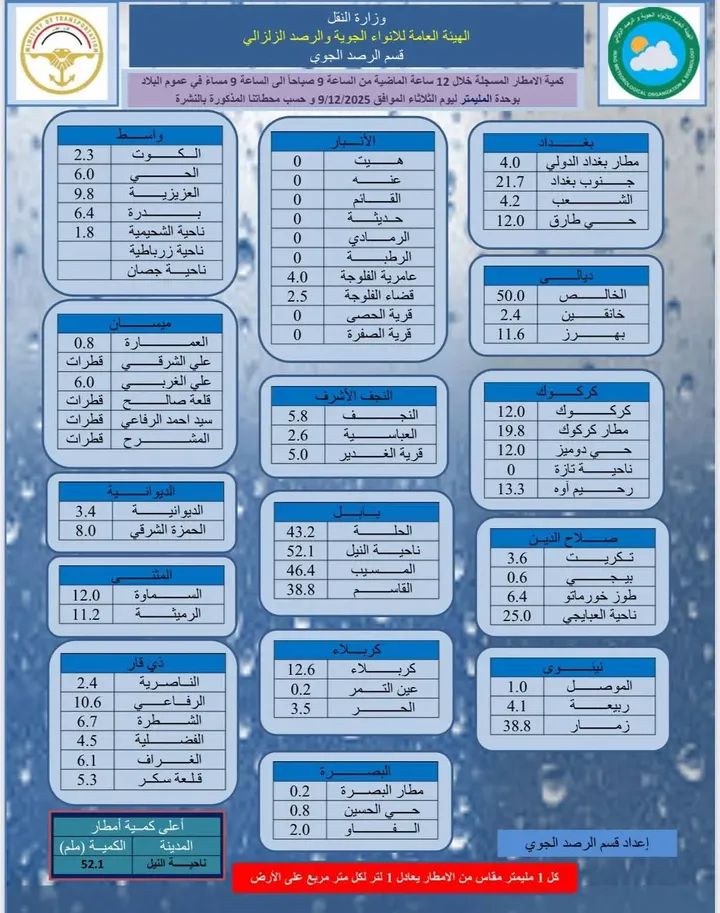 وزارة النقل
الهيئة العامة للانواء الجوية والرصد الزلزالي
قسم الرصد الجوي
MINISTRY OF TRANSPORTATION
IRAQ METEOROLOGICAL ORGANIZATION & SEISMOLOGY
كمية الامطار المسجلة خلال 12 ساعة الماضية من الساعة 9 صباحا الى الساعة 9 مساءً في عموم البلاد
بوحدة المليمتر ليوم الثلاثاء الموافق 9/12/2025 و حسب محطاتنا المذكورة بالنشرة
بغداد
مطار بغداد الدولي 4.0
جنوب بغداد 21.7
الشعب 4.2
حي طارق 12.0
ديالى
الخالص 50.0
خانقين 2.4
بهرز 11.6
كركوك
كركوك 12.0
مطار كركوك 19.8
حي دوميز 12.0
ناحية تازة 0
رحيم آوه 13.3
صلاح الدين
تكريت 3.6
بيجي 0.6
طوز خورماتو 6.4
ناحية العبايجي 25.0
نينوى
الموصل 1.0
ربيعة 4.1
زمار 38.8
الأنبار
هيت 0
عنه 0
القائم 0
حديثة 0
الرمادي 0
الرطبة 0
عامرية الفلوجة 4.0
قضاء الفلوجة 2.5
قرية الحصى 0
قرية الصفرة 0
النجف الأشرف
النجف 5.8
العباسية 2.6
قرية الغدير 5.0
بابل
الحلة 43.2
ناحية النيل 52.1
المسيب 46.4
القاسم 38.8
كربلاء
كربلاء 12.6
عين التمر 0.2
الحر 3.5
البصرة
مطار البصرة 0.2
حي الحسين 0.8
الفاو 2.0
واسط
الكوت 2.3
الحي 6.0
العزيزية 9.8
بدرة 6.4
ناحية الشحيمية 1.8
ناحية زرباطية
ناحية جصان
ميسان
العمارة 0.8
علي الشرقي قطرات
علي الغربي 6.0
قلعة صالح قطرات
سيد احمد الرفاعي قطرات
المشرح قطرات
الديوانية
الديوانية 3.4
الحمزة الشرقي 8.0
المثنى
السماوة 12.0
الرميثة 11.2
ذي قار
الناصرية 2.4
الرفاعي 10.6
الشطرة 6.7
الفضلية 4.5
الغراف 6.1
قلعة سكر 5.3
أعلى كمية أمطار
المدينة الكمية (ملم)
ناحية النيل 52.1
إعداد قسم الرصد الجوي
كل 1 مليمتر مقاس من الامطار يعادل 1 لتر لكل متر مربع على الأرض